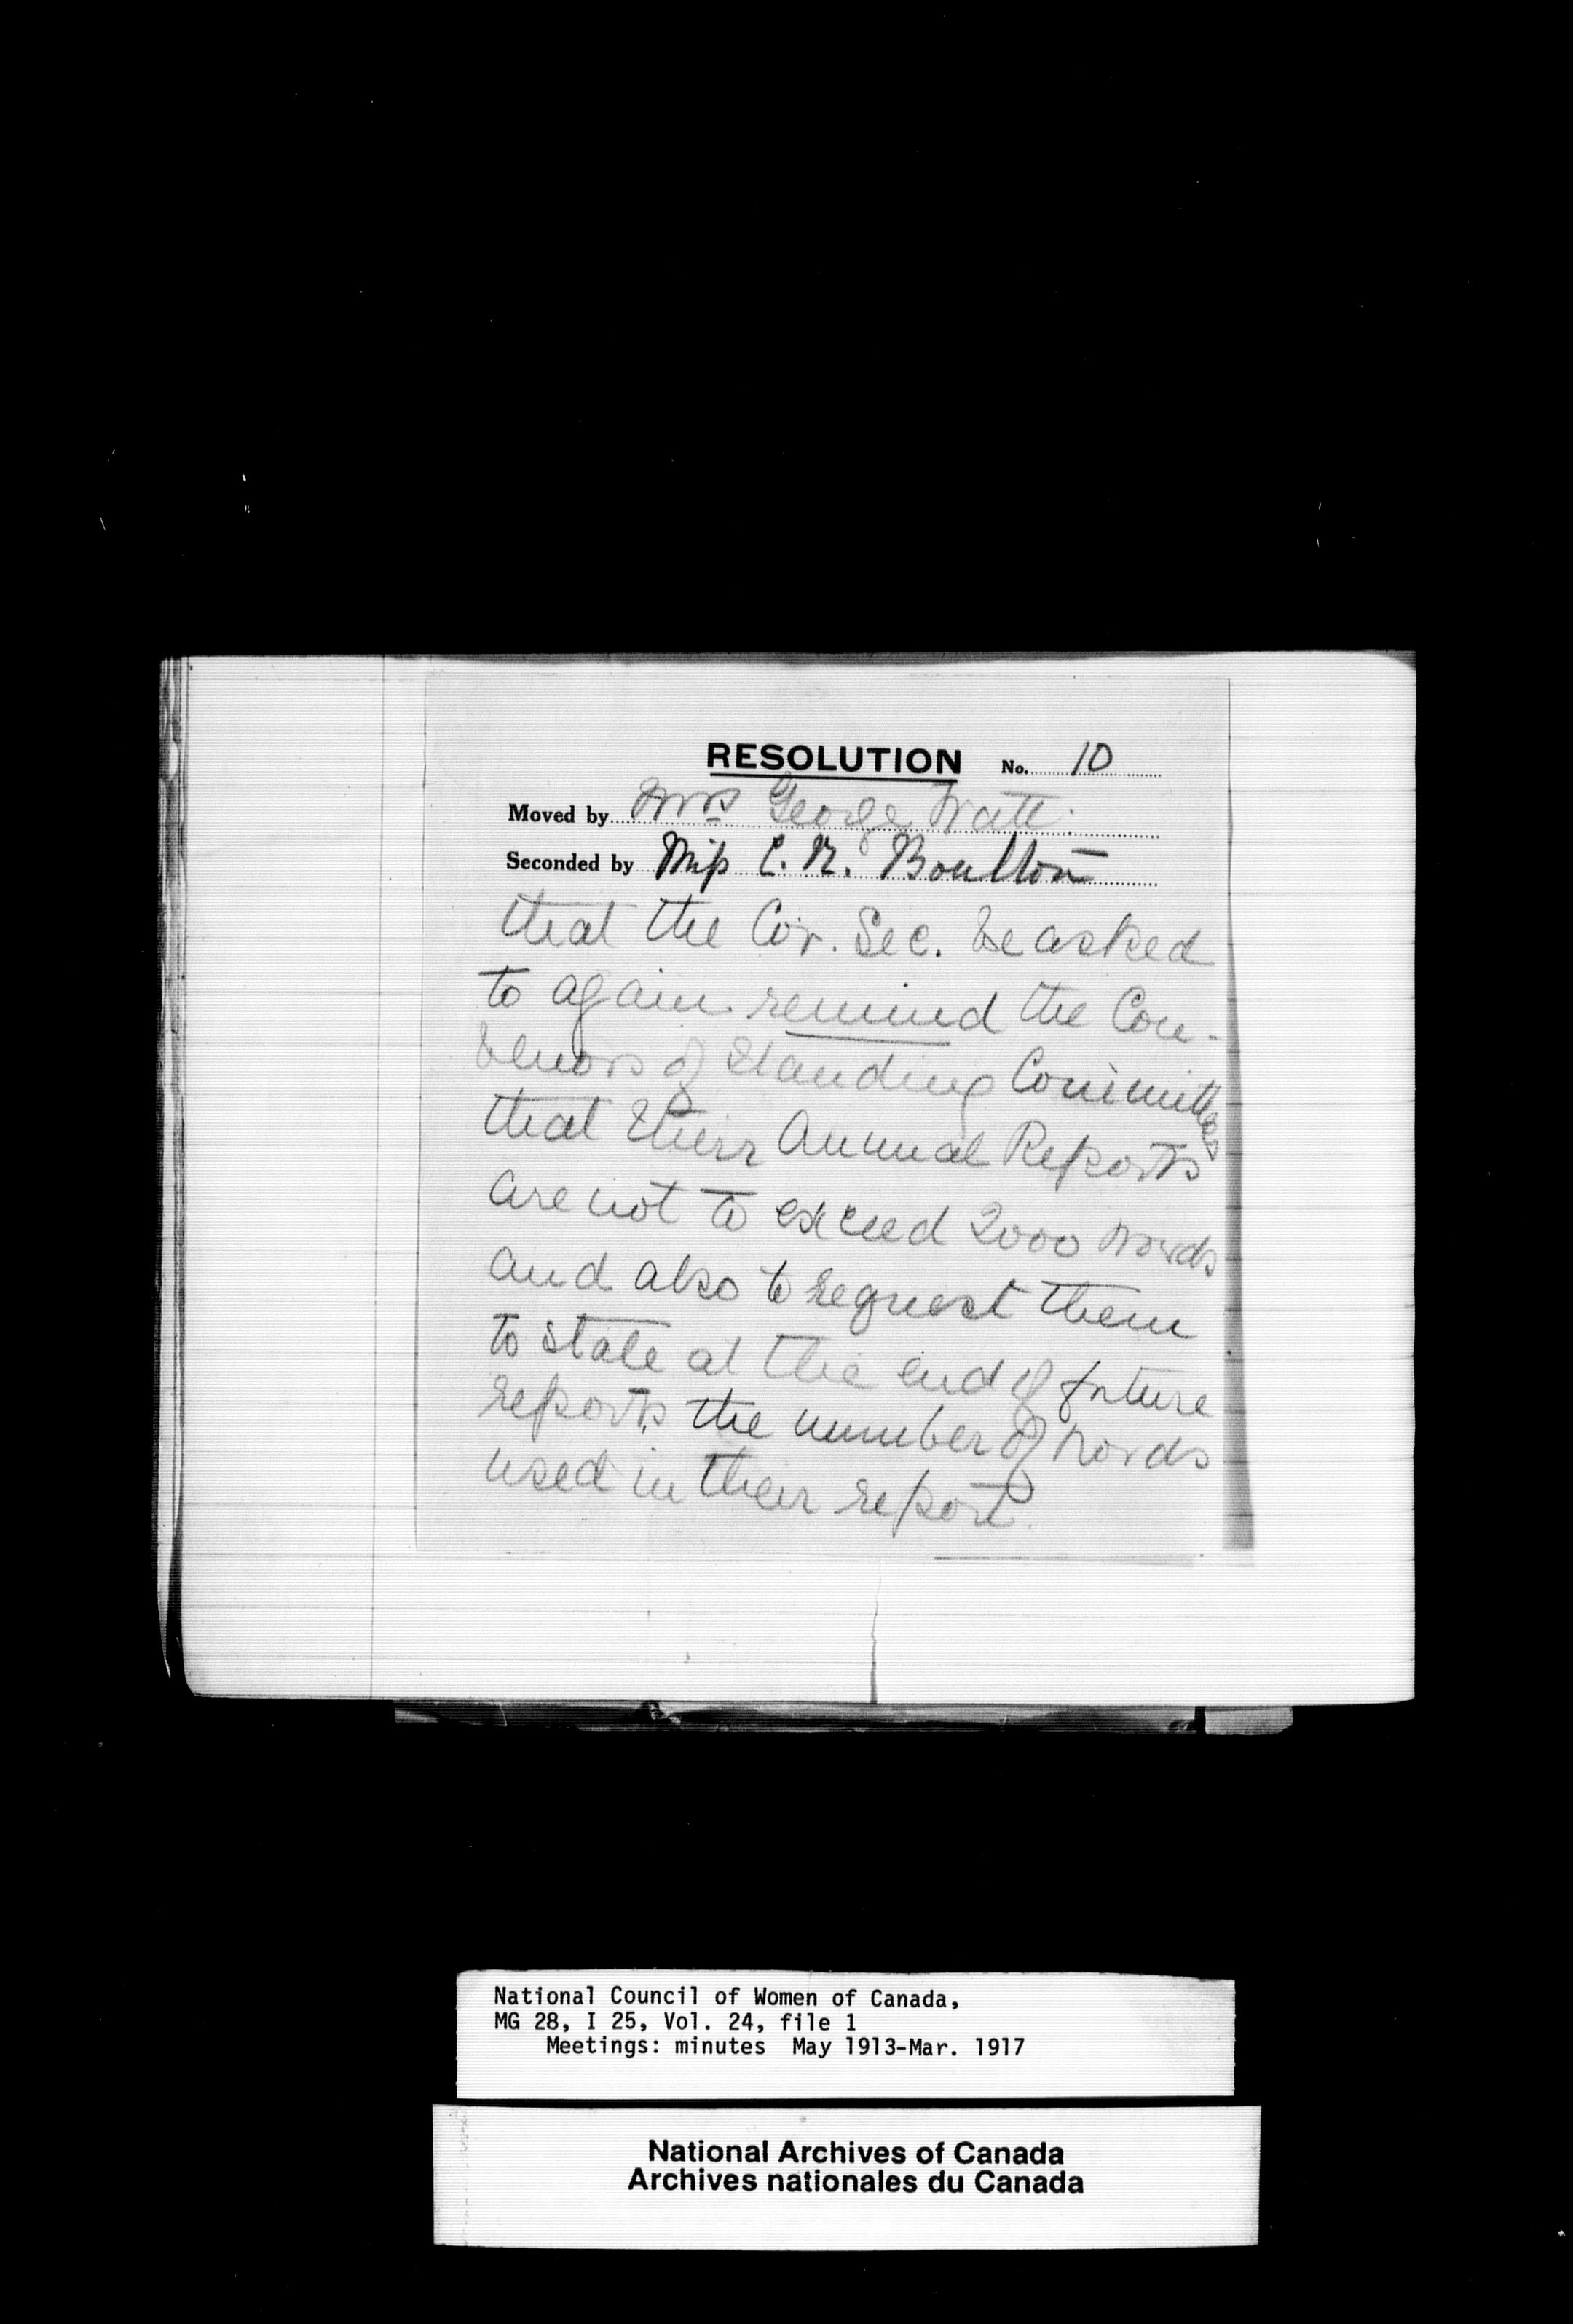 RESOLUTION No. 10
Moved by Mrs George Watt.
Seconded by Miss C. R. Boulton
that the Cor. Sec. be asked
to again remind the Con-
venors of Standing Committees
that their Annual Reports
are not to exceed 2000 words
and also to request them
to state at the end of future
reports the number of words
used in their report.
National Council of Women of Canada,
MG 28, I 25, Vol. 24, file 1
Meetings: minutes May 1913-Mar. 1917
National Archives of Canada
Archives nationales du Canada